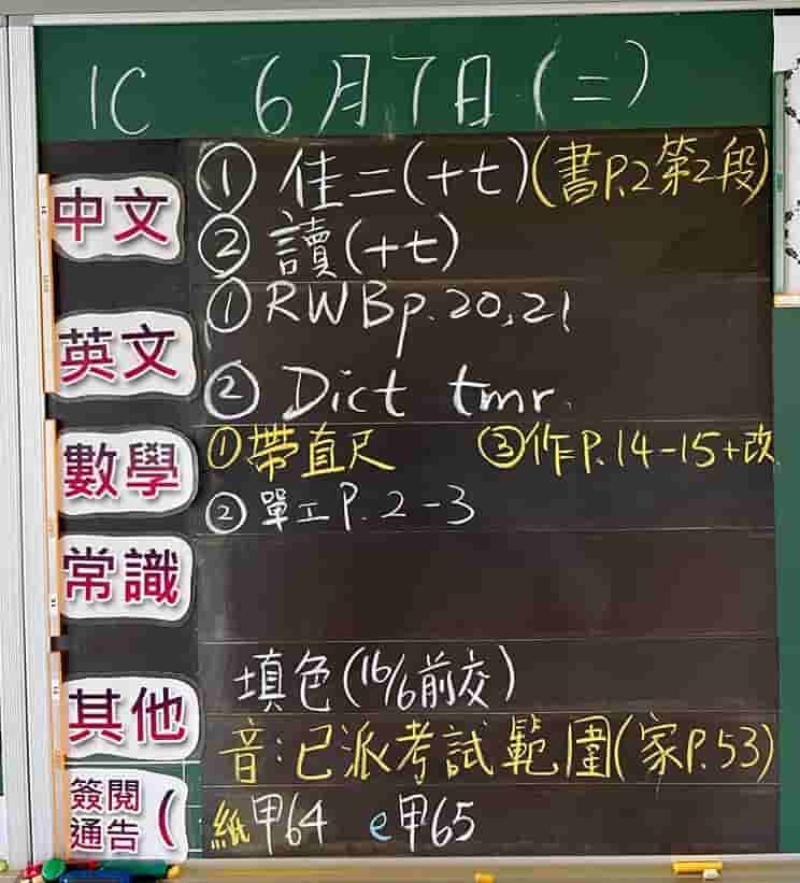 1C 6月7日(二)
中文 ① 佳二(+t)(書P.2第2段)
② 讀(+t)
英文 ① RWBp.20,21
② Dict tmr.
數學 ①帶直尺 ③作P.14-15+改
② 單工P.2-3
常識
其他 填色(16/6前交)
音:已派考試範圍(家P.53)
簽閱通告( 紙甲64 e甲65